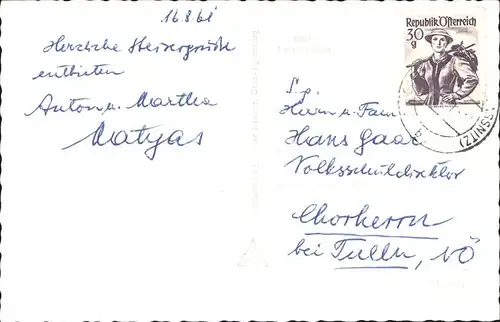 16.8.61
Herzliche Steirergrüße
entbieten
Anton u. Martha
Matyas
Republik Österreich
30
g
S.g.
Herrn u. Fam
Hans Gaar
Volksschuldirektor
Chorherrn
bei Tulln, NÖ